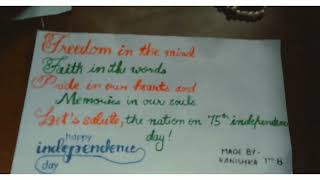 Freedom in the mind
Faith in the words
Pride in our hearts and
Memories in our souls
Let's salute, the nation on 75th independence
day!
happy
independence
day
MADE BY-
KANISHKA 7TH B